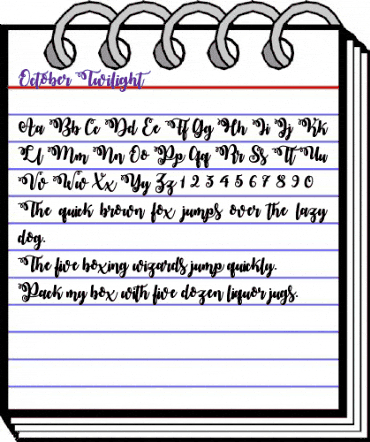 October Twilight
Aa Bb Cc Dd Ee Ff Gg Hh Ii Jj Kk
Ll Mm Nn Oo Pp Qq Rr Ss Tt Uu
Vv Ww Xx Yy Zz 1 2 3 4 5 6 7 8 9 0
The quick brown fox jumps over the lazy
dog.
The five boxing wizards jump quickly.
Pack my box with five dozen liquor jugs.